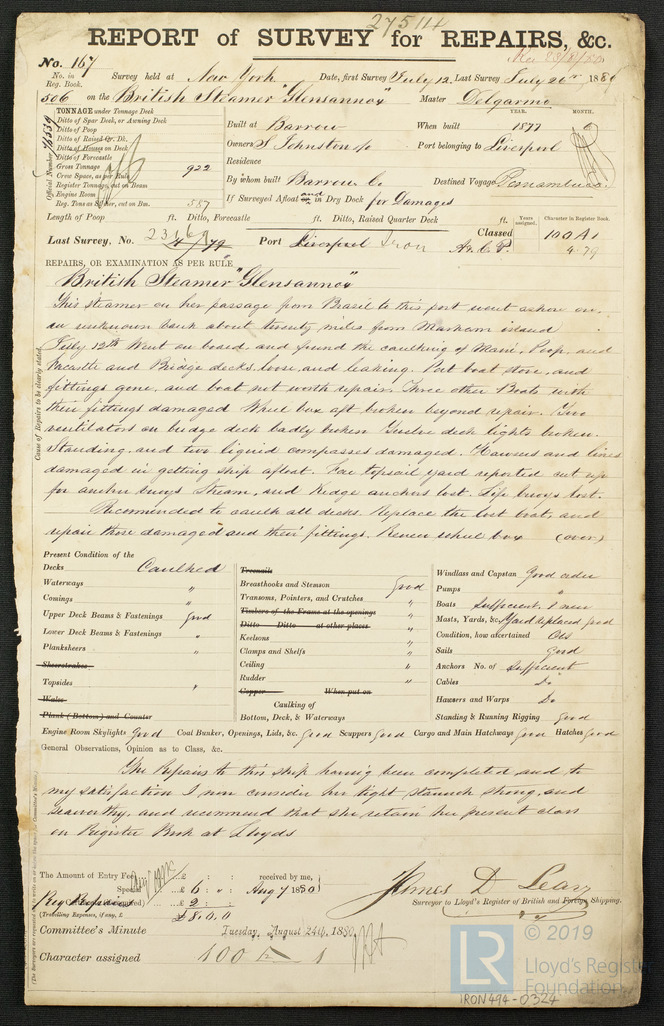 27514
REPORT of SURVEY for REPAIRS, &c.
No. 167
No. in Reg. Book. Survey held at New York Date, first Survey July 12. Last Survey July 26th 188
506 on the British Steamer "Glensannox" Master Delgarno
TONNAGE under Tonnage Deck
Ditto of Spar Deck, or Awning Deck
Ditto of Poop
Ditto of Raised Qr. Dk.
Ditto of Houses on Deck
Ditto of Forecastle
Gross Tonnage 922
Crew Space, as per Rule
Register Tonnage, cut on Beam
Engine Room
Reg. Tons as Steamer, cut on Bm. 587
Official Number
YEAR. MONTH.
Built at Barrow When built 1877
Owners J Johnston & Co Port belonging to Liverpool
Residence
By whom built Barrow Co. Destined Voyage Pernambuco.
If Surveyed Afloat and in Dry Dock for Damages
Length of Poop ft. Ditto, Forecastle ft. Ditto, Raised Quarter Deck ft. Years assigned. Character in Register Book.
Last Survey, No. 23169 Port Liverpool Iron Classed 100 A1
4.79
REPAIRS, OR EXAMINATION AS PER RULE
Cause of Repairs to be clearly stated.
British Steamer "Glensannox"
This steamer on her passage from Brasil to this port went ashore on
an unknown bank about twenty miles from Markam island
July 12th Went on board and found the caulking of Main, Poop, and
Forcastle and Bridge decks, loose, and leaking. Port boat stove, and
fittings gone, and boat not worth repair. Three other Boats with
their fittings damaged Wheel box aft broken beyond repair. Two
ventilators on bridge deck badly broken Twelve deck lights broken.
Standing, and two liquid compasses damaged. Hawsers and lines
damaged in getting ship afloat. Fore topsail yard reported cut up
for anchor buoys Stream, and Kedge anchors lost. Life buoys lost.
Recomended to caulk all decks. Replace the lost boat, and
repair those damaged and their fittings. Renew wheel box (over)
Present Condition of the
Decks Caulked
Waterways "
Comings "
Upper Deck Beams & Fastenings Good
Lower Deck Beams & Fastenings "
Planksheers "
Sheerstrakes
Topsides "
Wales
Plank (Bottom) and Counter
Treenails
Breasthooks and Stemson Good
Transoms, Pointers, and Crutches "
Timbers of the Frame at the openings
Ditto Ditto at other places
Keelsons "
Clamps and Shelfs "
Ceiling "
Rudder "
Copper When put on
Caulking of
Bottom, Deck, & Waterways
Windlass and Capstan Good order
Pumps "
Boats Sufficient. 1 new
Masts, Yards, &c. Yard replaced good
Condition, how ascertained
Sails Good
Anchors No. of Sufficient
Cables Do
Hawsers and Warps Do
Standing & Running Rigging Good
Engine Room Skylights Good Coal Bunker, Openings, Lids, &c. Good Scuppers Good Cargo and Main Hatchways Good Hatches Good
General Observations, Opinion as to Class, &c.
The Repairs to this ship having been completed and to
my satisfaction I now consider her tight staunch strong, and
seaworthy, and recommend that she retain her present class
in Register Book at Lloyds
The Amount of Entry Fee £ received by me,
Special £ 6 : " : Aug 7 1880
£ 2 :
(Travelling Expenses, if any, £ £8.0.0
James D Leary
Surveyor to Lloyd's Register of British and Foreign Shipping.
Committee's Minute Tuesday, August 24th, 1880
Character assigned 100 1
© 2019
LR
Lloyd's Register
Foundation
IRON494-0324